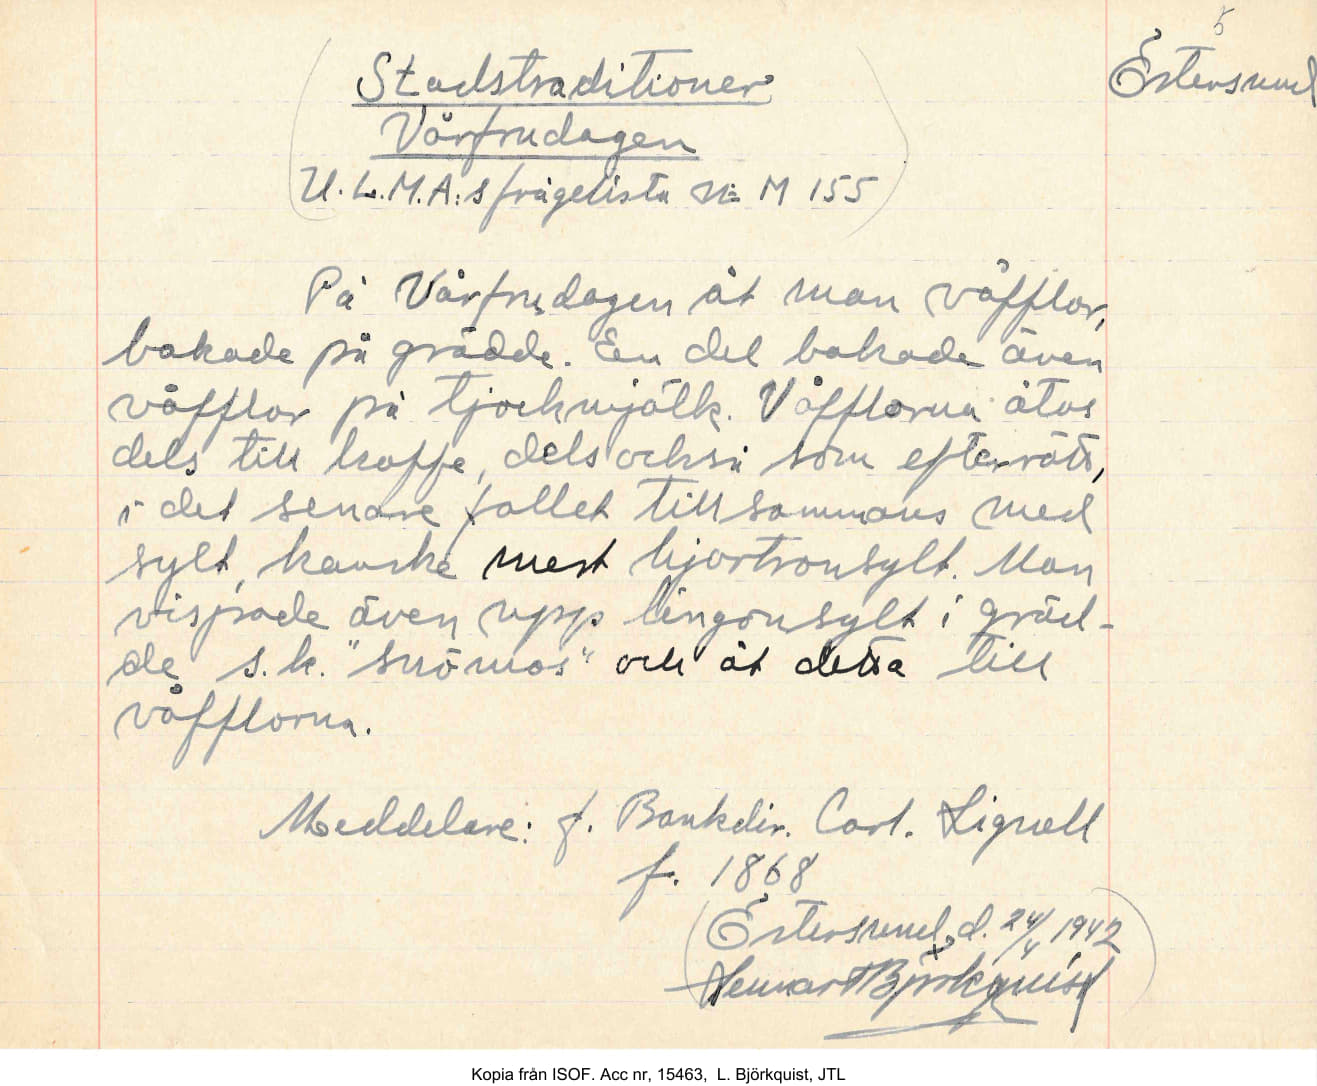 5
Östersund
Stadstraditioner
Vårfrudagen
U.L.M.A:s frågelista n: M 155
På Vårfrudagen åt man våfflor,
bakade på grädde. En del bakade även
våfflor på tjockmjölk. Våfflorna åtos
dels till kaffe, dels också som efterrätt,
i det senare fallet tillsammans med
sylt, kanske mest hjortronsylt. Man
vispade även upp lingonsylt i gräd-
de s.k. "snömos" och åt detta till
våfflorna.
Meddelare: f. Bankdir. Carl. Lignell
f. 1868
Östersund, d. 24/4 1942
Lennart Björkquist
Kopia från ISOF. Acc nr, 15463, L. Björkquist, JTL